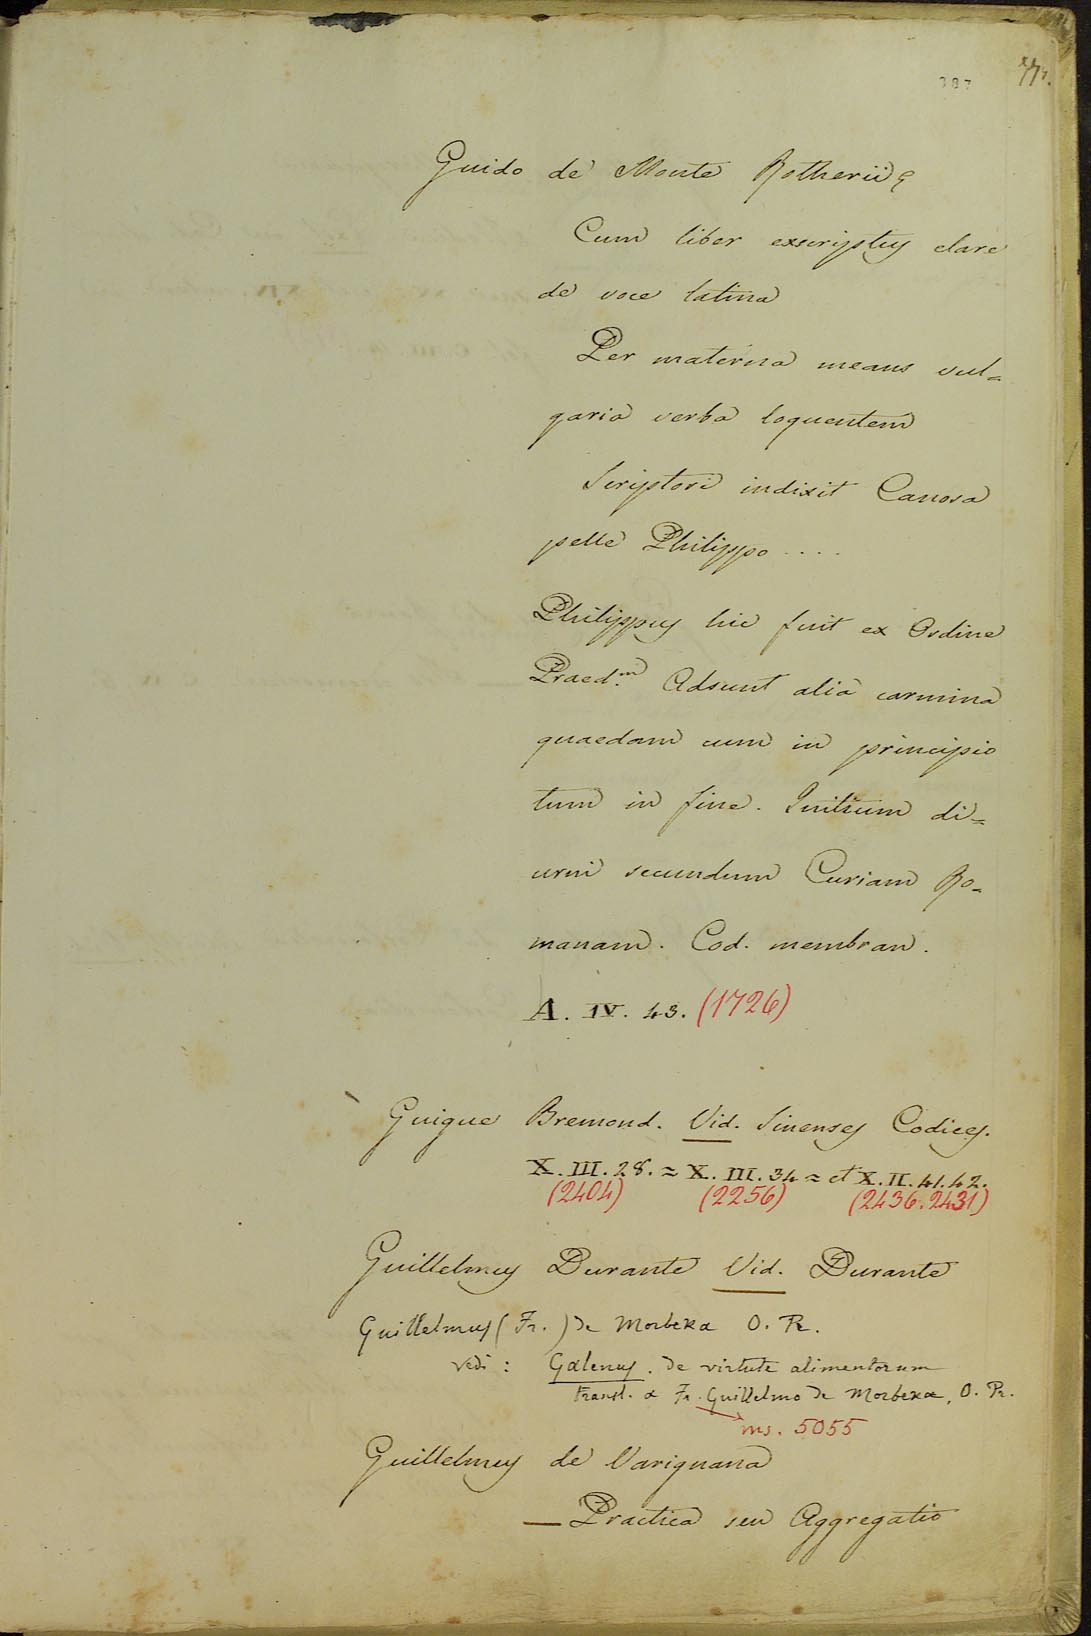 387
Guido de Monte Rotherii
Cum liber exscriptus clare
de voce latina
Per materna means vul=
garia verba loquentem
Scriptori indixit Canosa
pelle Philippo ....
Philippus hic fuit ex Ordine
Praed.m Adsunt alia carmina
quaedam cum in principio
tum in fine. Initium di=
urni secundum Curiam Ro-
manam. Cod. membran.
A. IV. 43. (1726)
Guigue Bremond. Vid. Sinenses Codices.
X. III. 28. = X. III. 34 = et X. II. 41. 42.
(2404) (2256) (2436. 2431)
Guillelmus Durante Vid. Durante
Guillelmus (Fr.) de Morbeka O. Pr.
vedi: Galenus. De virtute alimentorum
transl. a Fr. Guillelmo de Morbeka, O. Pr.
ms. 5055
Guillelmus de Varignana
— Practica seu Aggregatio